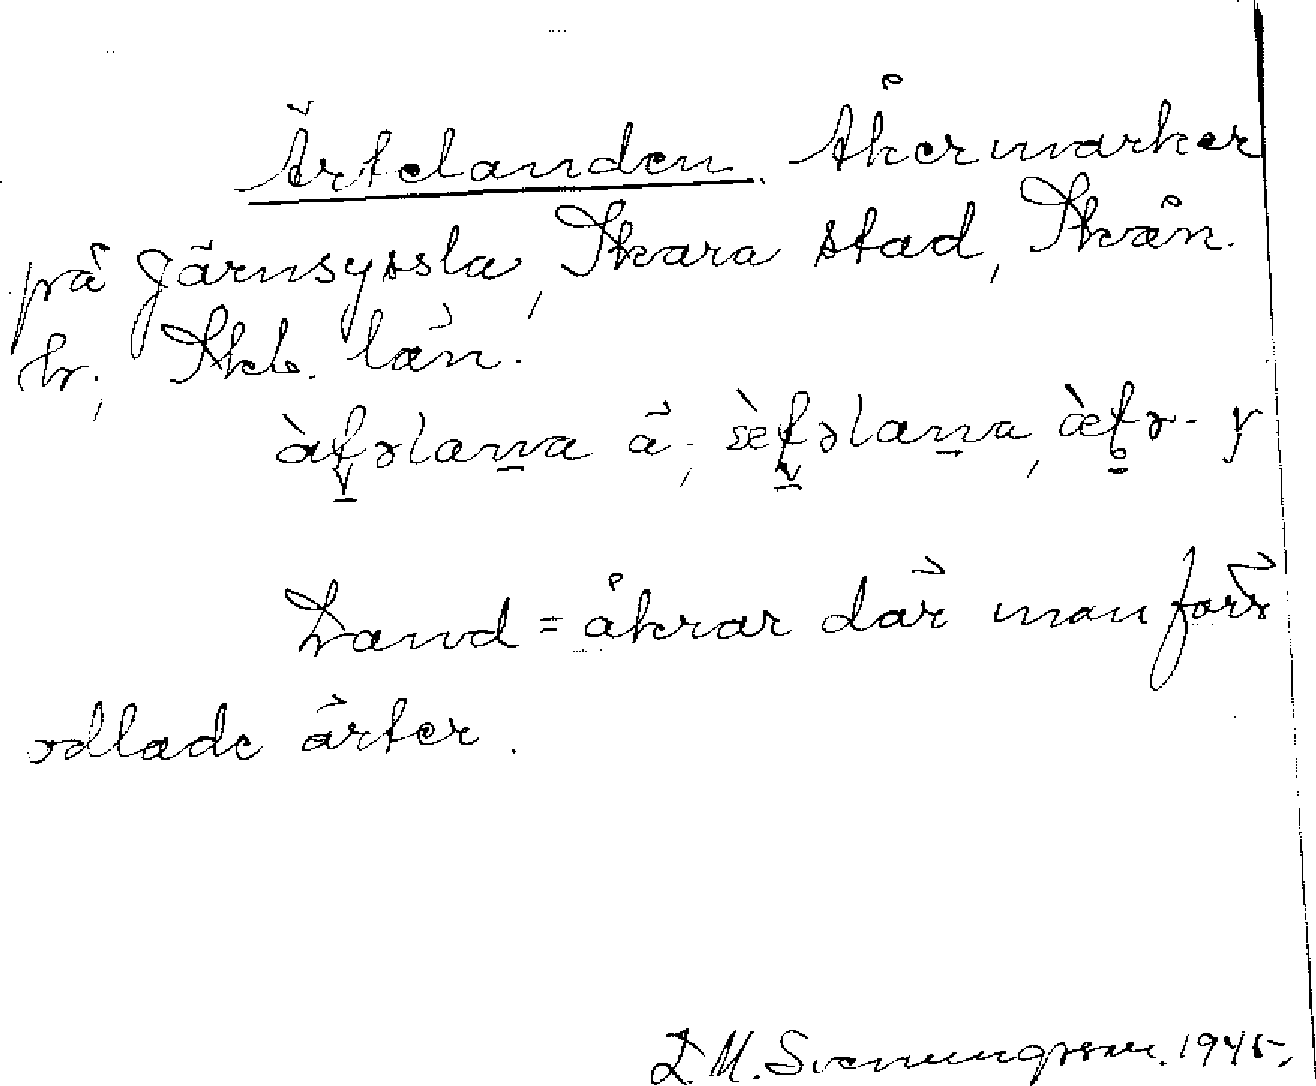 Ärtelanden. Åkermarker
på Järnsyssla, Skara stad, Skån.
hr, Skb. län.
Land = åkrar där man förr
odlade ärter.
L. M. Svenungsson. 1945.